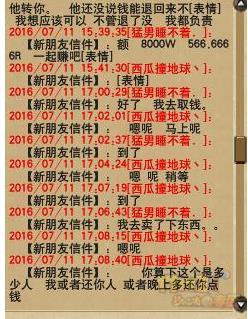 他转你。 他还没说钱能退回来不[表情]
我想应该可以 不管退了没 我都负责
2016/07/11 15:39:35[猛男睡不着．]:
【新朋友信件】: 额 8000W 566,666
6R 一起赚吧[表情]
2016/07/11 15:41:30[西瓜撞地球丶]:
【新朋友信件】:[表情]
2016/07/11 17:00:29[西瓜撞地球丶]:
【新朋友信件】: 好了 我去取钱。
2016/07/11 17:01:20[猛男睡不着．]:
【新朋友信件】: 嗯呢 马上呢
2016/07/11 17:02:34[猛男睡不着．]:
【新朋友信件】: 到了
2016/07/11 17:04:24[西瓜撞地球丶]:
【新朋友信件】: 嗯 呢 稍等
2016/07/11 17:07:19[西瓜撞地球丶]:
【新朋友信件】: 到了
2016/07/11 17:06:43[猛男睡不着．]:
【新朋友信件】: 我去卖了下东西。。
2016/07/11 17:08:08[西瓜撞地球丶]:
【新朋友信件】: 嗯呢
2016/07/11 17:08:40[西瓜撞地球丶]:
【新朋友信件】: 你算下这个是多
少人 我或者还你人 或者晚上多还你点
钱